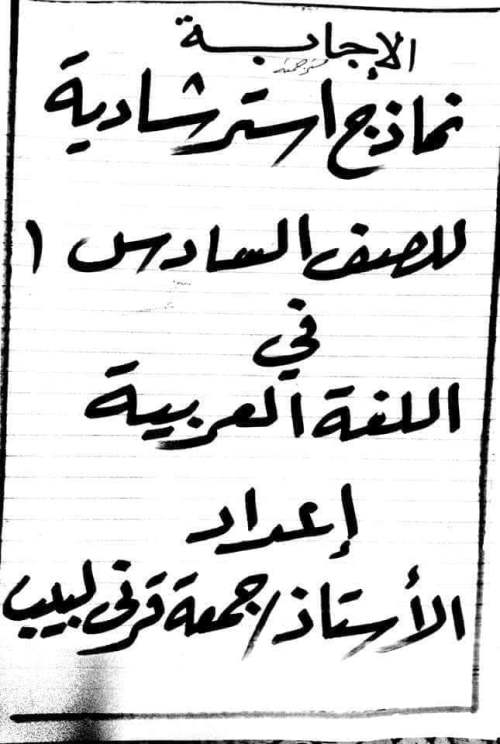 الإجابة
نماذج استرشادية
للصف السادس ١
في
اللغة العربية
إعداد
الأستاذ/جمعة قرني لبيب